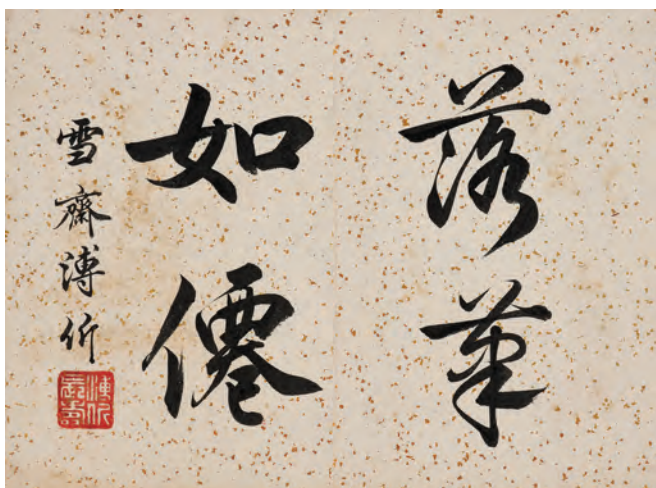 落筆
如僊
雪齋溥伒